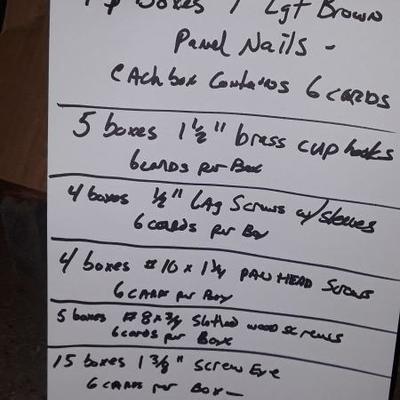 boxes 1" Lgt Brown
Panel Nails -
each box contains 6 cards
5 boxes 1½" brass cup hooks
6 cards per Box
4 boxes ½" Lag Screws w/sleeves
6 cards per Box
4 boxes #10 x 1¾ PAN HEAD Screws
6 cards per Box
5 boxes #8 x ¾ Slotted wood screws
6 cards per Box
15 boxes 1 3/8" Screw Eye
6 cards per Box -